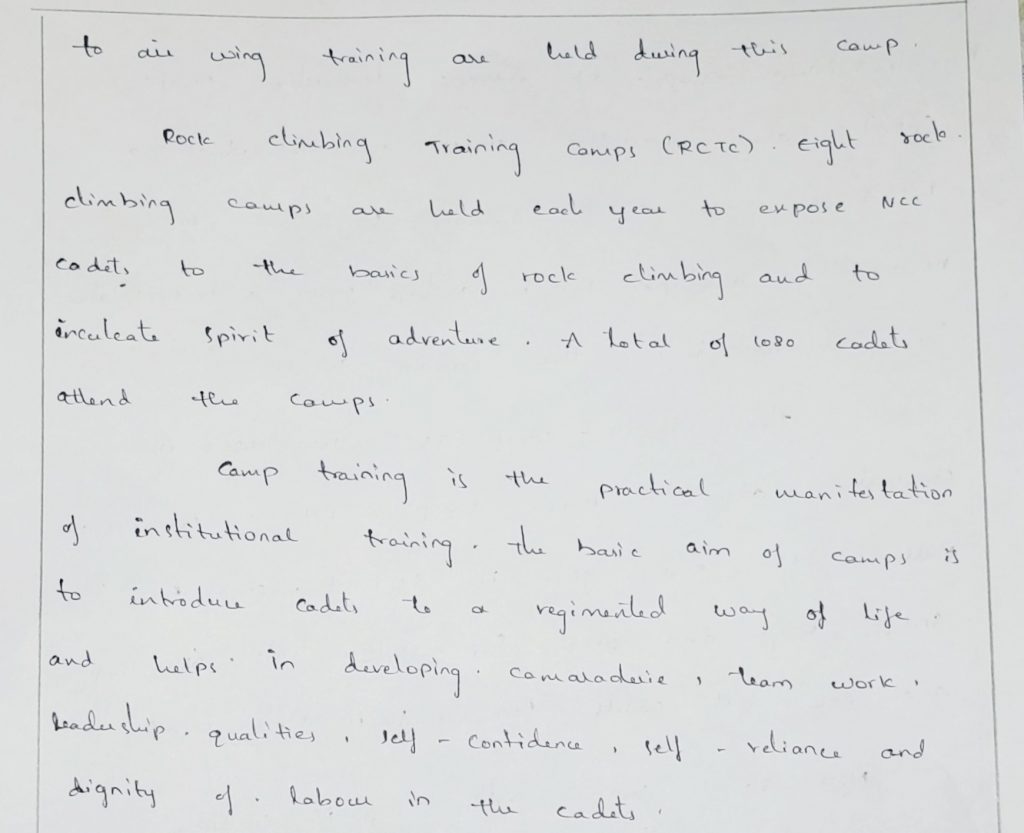 to air wing training are held during this camp.
Rock climbing Training Camps (RCTC). Eight rock
climbing camps are held each year to expose NCC
cadets to the basics of rock climbing and to
inculcate spirit of adventure. A total of 1080 cadets
attend the camps.
Camp training is the practical manifestation
of institutional training. The basic aim of camps is
to introduce cadets to a regimented way of life
and helps in developing camaraderie, team work,
leadership qualities, self-confidence, self-reliance and
dignity of labour in the cadets.